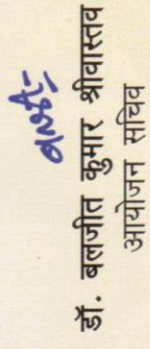 डॉ. बलजीत कुमार श्रीवास्तव
आयोजन सचिव